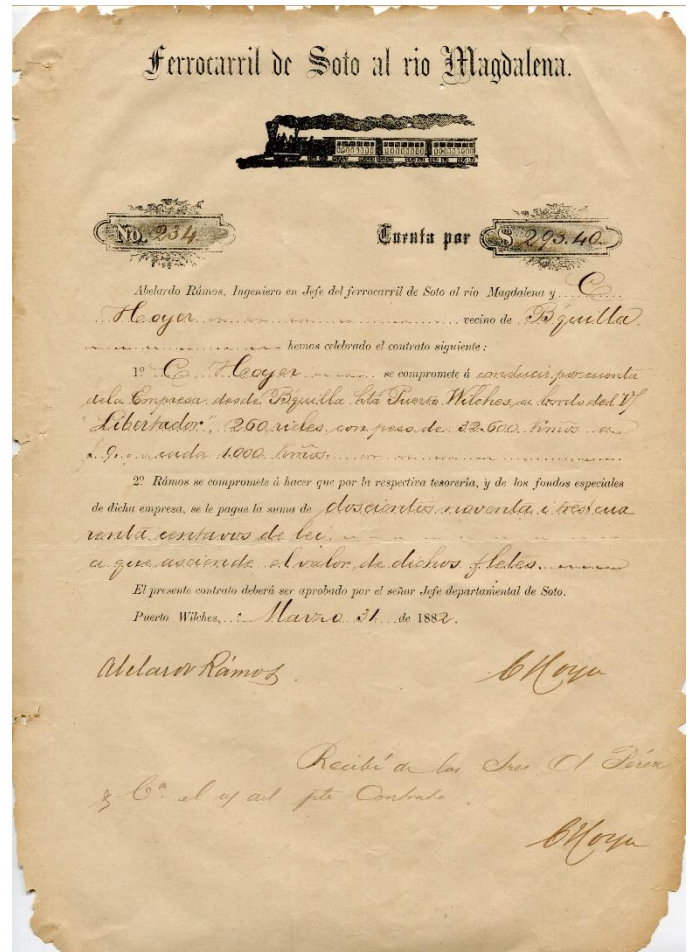 Ferrocarril de Soto al rio Magdalena.
No. 234
Cuenta por $ 293.40.
Abelardo Rámos, Ingeniero en Jefe del ferrocarril de Soto al rio Magdalena y C.
Hoyer vecino de B'quilla
hemos celebrado el contrato siguiente:
1º C. Hoyer se compromete á conducir por cuenta
de la Empresa desde B'quilla hta Puerto Wilches, a bordo del V/
"Libertador", 260 rieles con peso de 32.600 kmos a
$ 9 cada 1.000 kmos.
2º Rámos se compromete á hacer que por la respectiva tesorería, y de los fondos especiales
de dicha empresa, se le pague la suma de doscientos noventa i tres, cua
renta centavos de lei
a que asciende el valor de dichos fletes.
El presente contrato deberá ser aprobado por el señor Jefe departamental de Soto.
Puerto Wilches, Marzo 31 de 1882.
Abelardo Rámos. C Hoyer
Recibí de los Sres Pérez
& Cª el del pte Contrato.
C Hoyer